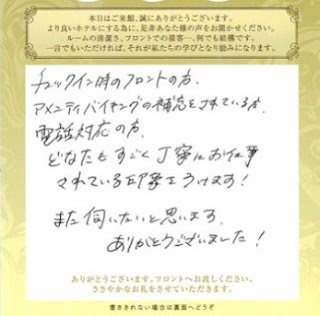 本日はご来館、誠にありがとうございます。
より良いホテルにする為に、是非あなた様の声をお聞かせください。
ルームの清潔さ、フロントでの接客…、何でも結構です。
一言でもいただければ、それが私たちの学びとなり励みになります。
チェックイン時のフロントの方、
アメニティバイキングの補充をされている方、
電話対応の方、
どなたもすごく丁寧にお仕事
されている印象をうけます!
また伺いたいと思います。
ありがとうございました!
ありがとうございます。フロントへお渡しください。
ささやかなお礼をさせていただきます。
書ききれない場合は裏面へどうぞ